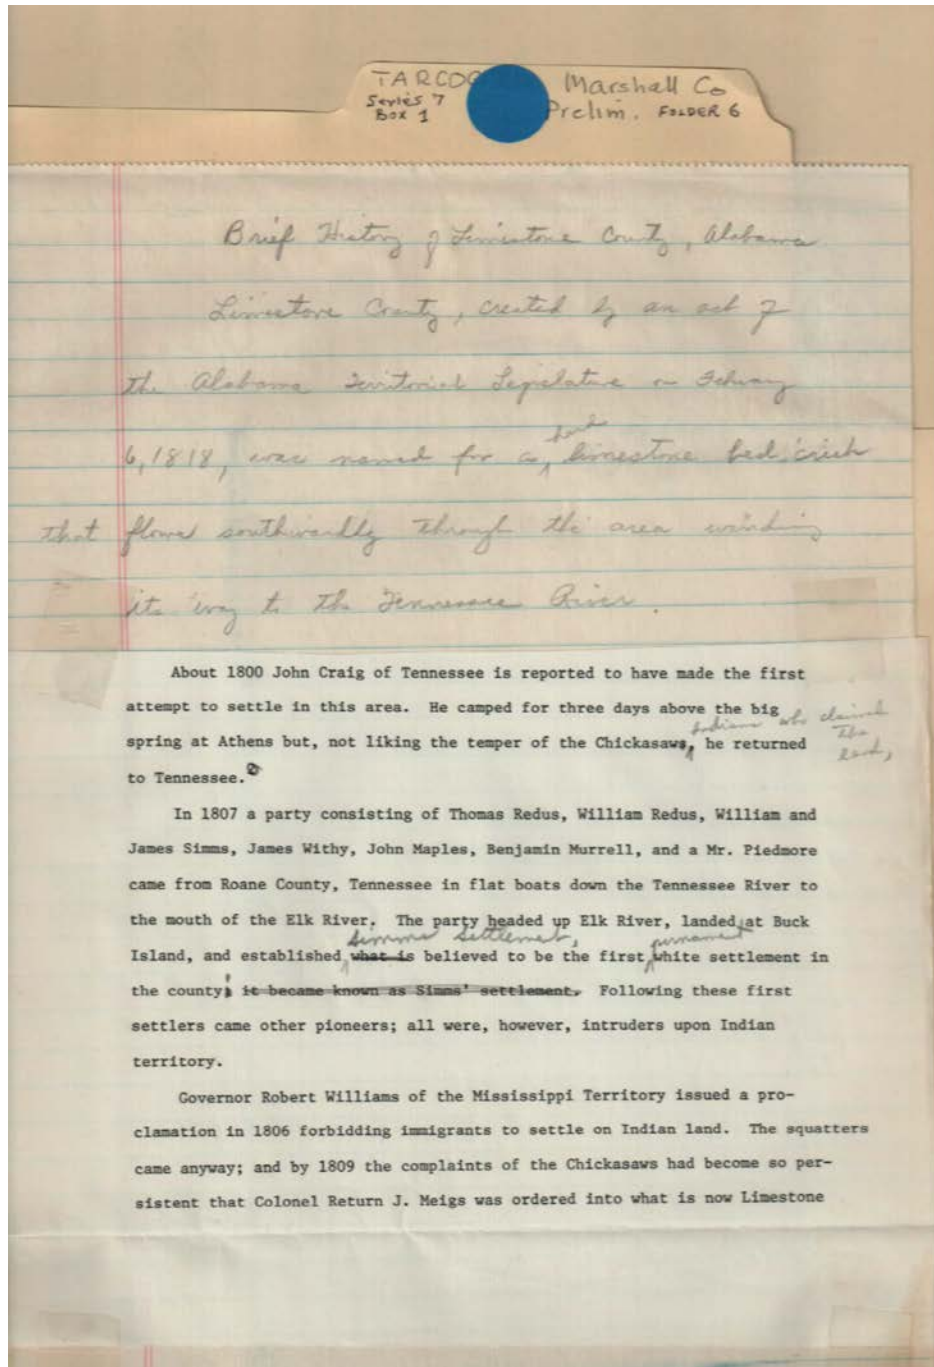 TARCOG
Series 7
Box 1
Marshall Co
Prelim. FOLDER 6
Brief History of Limestone County, Alabama
Limestone County, created by an act of
the Alabama Territorial Legislature on February
6, 1818, was named for a hard limestone bed creek
that flows southwardly through the area winding
its way to the Tennessee River.
About 1800 John Craig of Tennessee is reported to have made the first
attempt to settle in this area. He camped for three days above the big
spring at Athens but, not liking the temper of the Chickasaws, Indians who claimed the land, he returned
to Tennessee.
In 1807 a party consisting of Thomas Redus, William Redus, William and
James Simms, James Withy, John Maples, Benjamin Murrell, and a Mr. Piedmore
came from Roane County, Tennessee in flat boats down the Tennessee River to
the mouth of the Elk River. The party headed up Elk River, landed at Buck
Simms' Settlement, permanent
Island, and established what is believed to be the first white settlement in
the county; it became known as Simms' settlement. Following these first
settlers came other pioneers; all were, however, intruders upon Indian
territory.
Governor Robert Williams of the Mississippi Territory issued a pro-
clamation in 1806 forbidding immigrants to settle on Indian land. The squatters
came anyway; and by 1809 the complaints of the Chickasaws had become so per-
sistent that Colonel Return J. Meigs was ordered into what is now Limestone